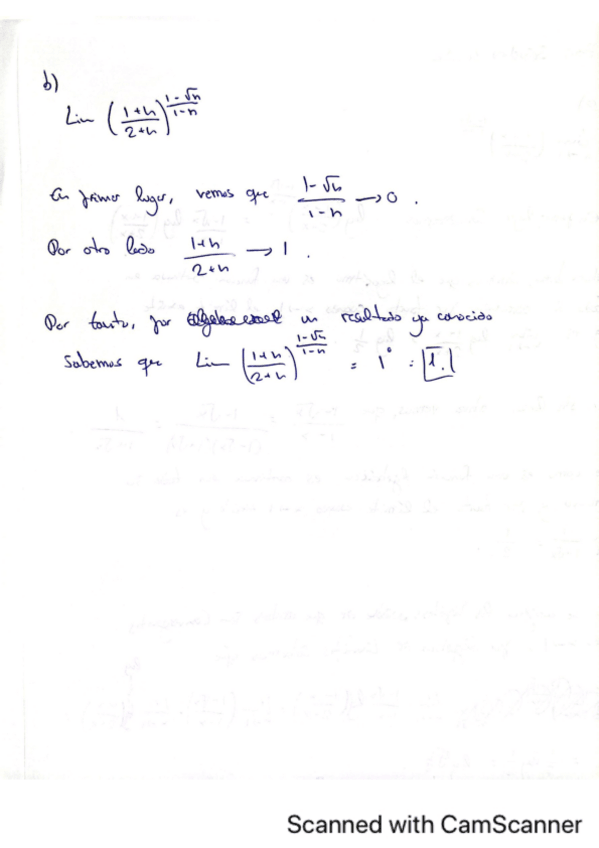 b)
Lim ((1+n)/(2+n))^((1-√n)/(1-n))
En primer lugar, vemos que (1-√n)/(1-n) → 0 .
Por otro lado (1+n)/(2+n) → 1 .
Por tanto, por un resultado ya conocido
Sabemos que Lim ((1+n)/(2+n))^((1-√n)/(1-n)) = 1^0 = 1.
Scanned with CamScanner